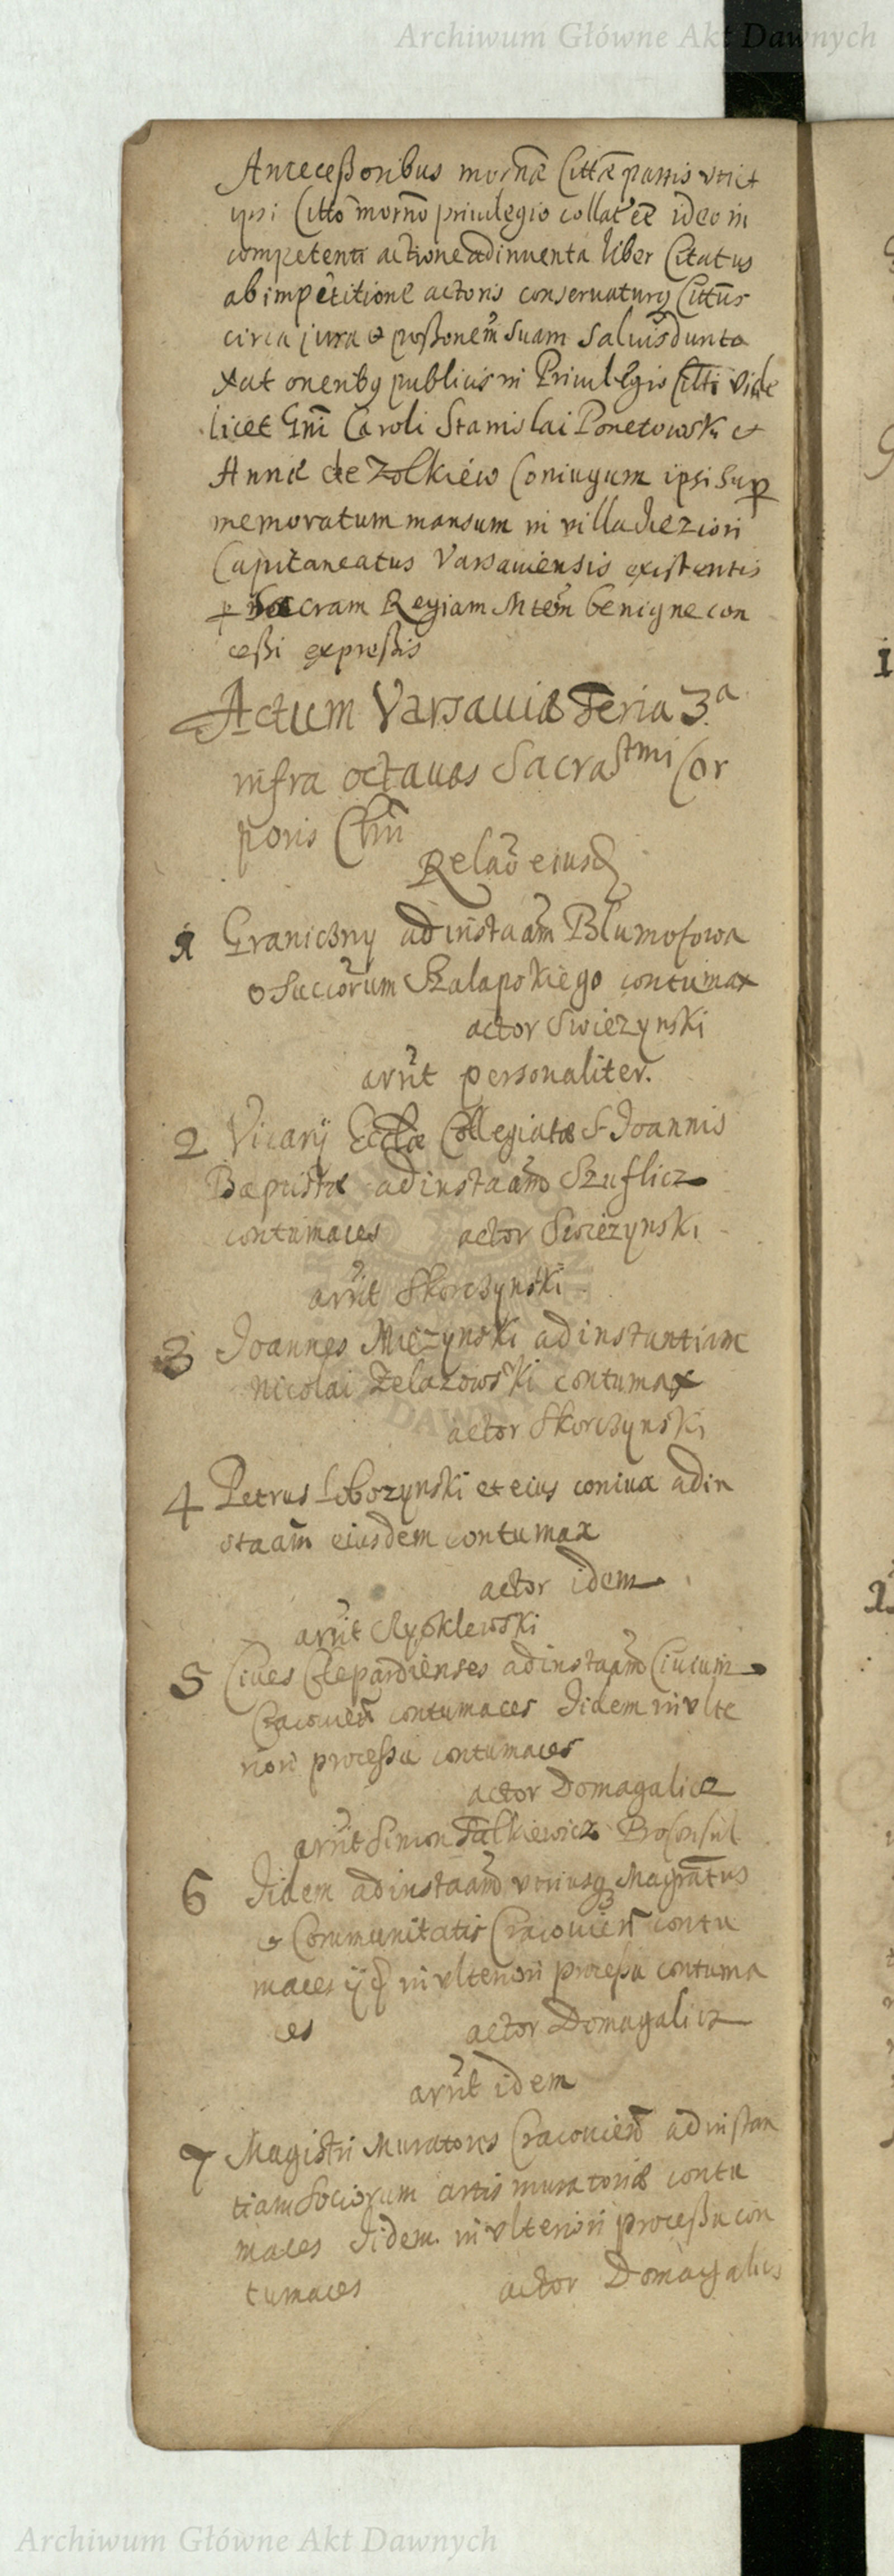 Archiwum Główne Akt Dawnych
Anteceßoribus mornæ Cittæ partis
ipsi Citto morno priuilegio collat' ēē ideo in
competenti actione adinuenta liber Citatus
ab impetitione actoris conseruaturq Cittus
circa jura et poßonem suam saluis dunta
xat oneribq publicis in Priuilegio vide
licet Gni Caroli Stanislai Ponetowski et
Annæ de Zolkiew Coniugum ipsi sup
memoratum mansum in villa Jeziori
Capitaneatus Varsauiensis existentis
p Sacram Regiam Mtem benigne con
ceßi expreßis
Actum Varsauiæ Feria 3.a
infra octauas Sacrastmi Cor
poris Chri
Relao eiusd
1 Graniczny ad instaam
Succiorum contumax
actor Swiezynski
arüt personaliter.
2 Vicarij Ecclæ Collegiatæ S Joannis
Baptistæ ad instaam Szuflicz
contumaces actor Swiezynski
arüt Skorczynski
3 Joannes Miezynski ad instantiam
Nicolai Zelazowski contumax
actor Skorczynski
4 Petrus Lobozynski et eius coniux ad in
staam eiusdem contumax
actor idem
arüt
5 Ciues Clepardienses ad instaam Ciuium
Cracouien contumaces Iidem in vlte
riori proceßu contumaces
actor Domagalicz
arüt Simon Falkiewicz Proconsul
6 Iidem ad instaam vtriusq Magratus
et Communitatis Cracouien contu
maces ijd in vlteriori proceßu contuma
ces actor Domagalicz
arüt idem
7 Magistri Muratores Cracouien ad instan
tiam Sociorum artis muratoriæ contu
maces Iidem in vlteriori proceßu con
tumaces actor Domagalicz
Archiwum Główne Akt Dawnych